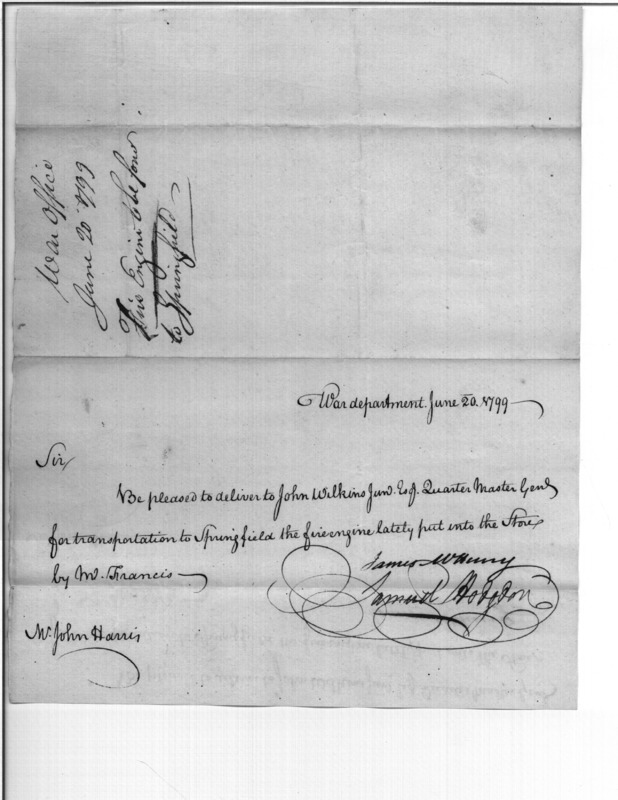 War Office
June 20 1799
This Engine to be forw
to Springfield
War department June 20. 1799
Sir,
Be pleased to deliver to John Wilkins Junr. Esq. Quarter Master Genl.
for transportation to Springfield the fire engine lately put into the Store
by Mr. Francis
James McHenry
Samuel Hodgdon
Mr. John Harris